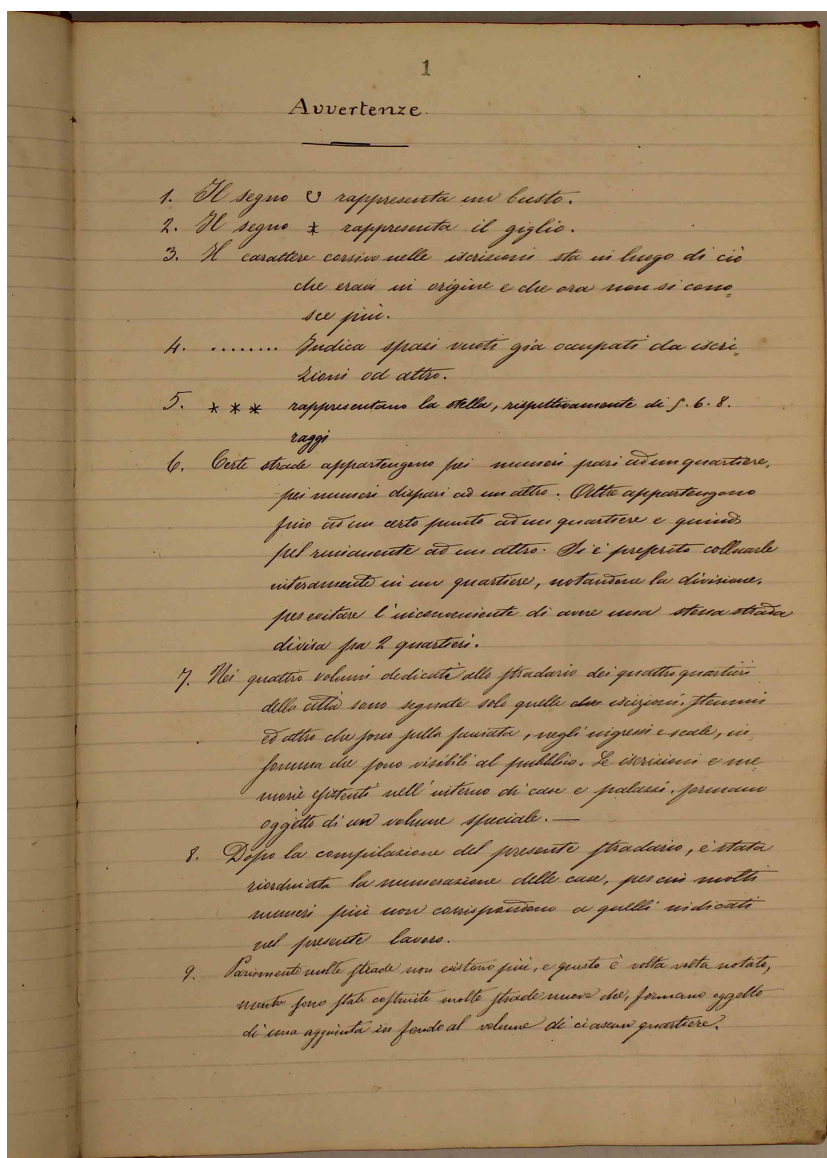 1
Avvertenze.
1. Il segno ʊ rappresenta un busto.
2. Il segno * rappresenta il giglio.
3. Il carattere corsivo nelle iscrizioni sta in luogo di ciò
che eravi in origine e che ora non si cono=
sce più.
4. ........ Indica spazi vuoti già occupati da iscri=
zioni od altro.
5. * * * rappresentano la stella, rispettivamente di 5. 6. 8.
raggi
6. Certe strade appartengono pei numeri pari ad un quartiere,
pei numeri dispari ad un altro. Altre appartengono
fino ad un certo punto ad un quartiere e quindi
pel rimanente ad un altro. Si è preferito collocarle
interamente in un quartiere, notandone la divisione,
per evitare l'inconveniente di avere una stessa strada
divisa fra 2 quartieri.
7. Nei quattro volumi dedicati allo stradario dei quattro quartieri
della città sono segnate solo quelle iscrizioni, stemmi
ed altro che sono sulla facciata, negli ingressi e scale, in=
somma che sono visibili al pubblico. Le iscrizioni e me=
morie esistenti nell'interno di case e palazzi, formano
oggetto di un volume speciale. —
8. Dopo la compilazione del presente stradario, è stata
riordinata la numerazione delle case, per cui molti
numeri più non corrispondono a quelli indicati
nel presente lavoro.
9. Parimente molte strade non esistono più, e questo è volta volta notato,
mentre sono state costruite molte strade nuove che, formano oggetto
di una aggiunta in fondo al volume di ciascun quartiere.